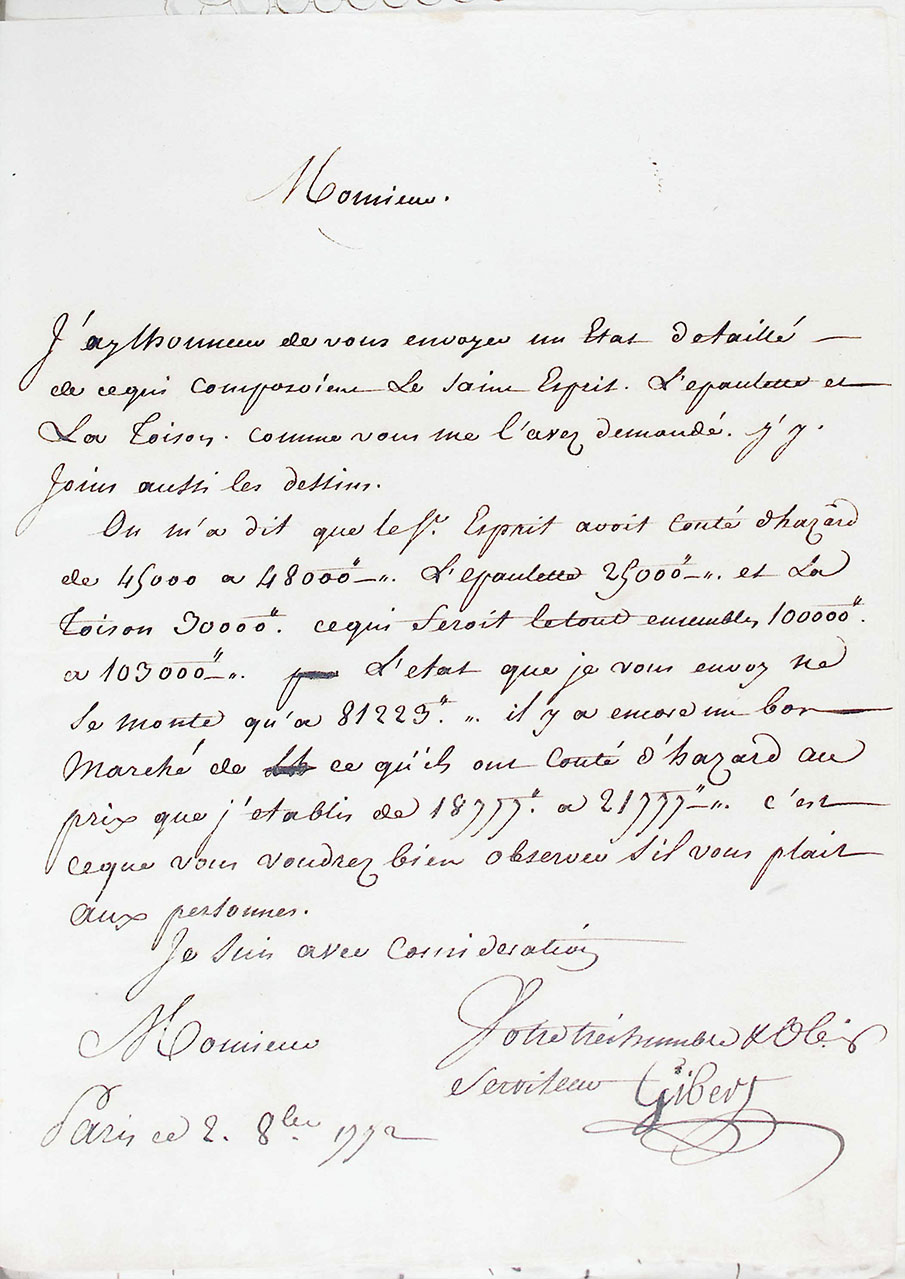 Monsieur.
J'ay lhonneur de vous envoyer un Etat detaillé
de cequi composoient Le Saint Esprit. L'epaulette et
La Toison. comme vous me l'avez demandé. j'y.
Joins aussi les dessins.
On m'a dit que le St. Esprit avoit couté d'hazard
de 45000 a 48000". L'epaulette 25000". et La
Toison 30000". cequi seroit letout ensembles 100000".
a 103000". L'etat que je vous envoy ne
se monte qu'a 81223". il y a encore un bon
Marché de ce qu'ils ont Couté d'hazard au
prix que j'etablis de 18777". a 21777". c'est
ceque vous voudrez bien observer s'il vous plait
aux personnes.
Je suis avec Consideration
Monsieur
Votre trés humble & Obt.
Serviteur Gibert
Paris ce 2. 8bre 1772